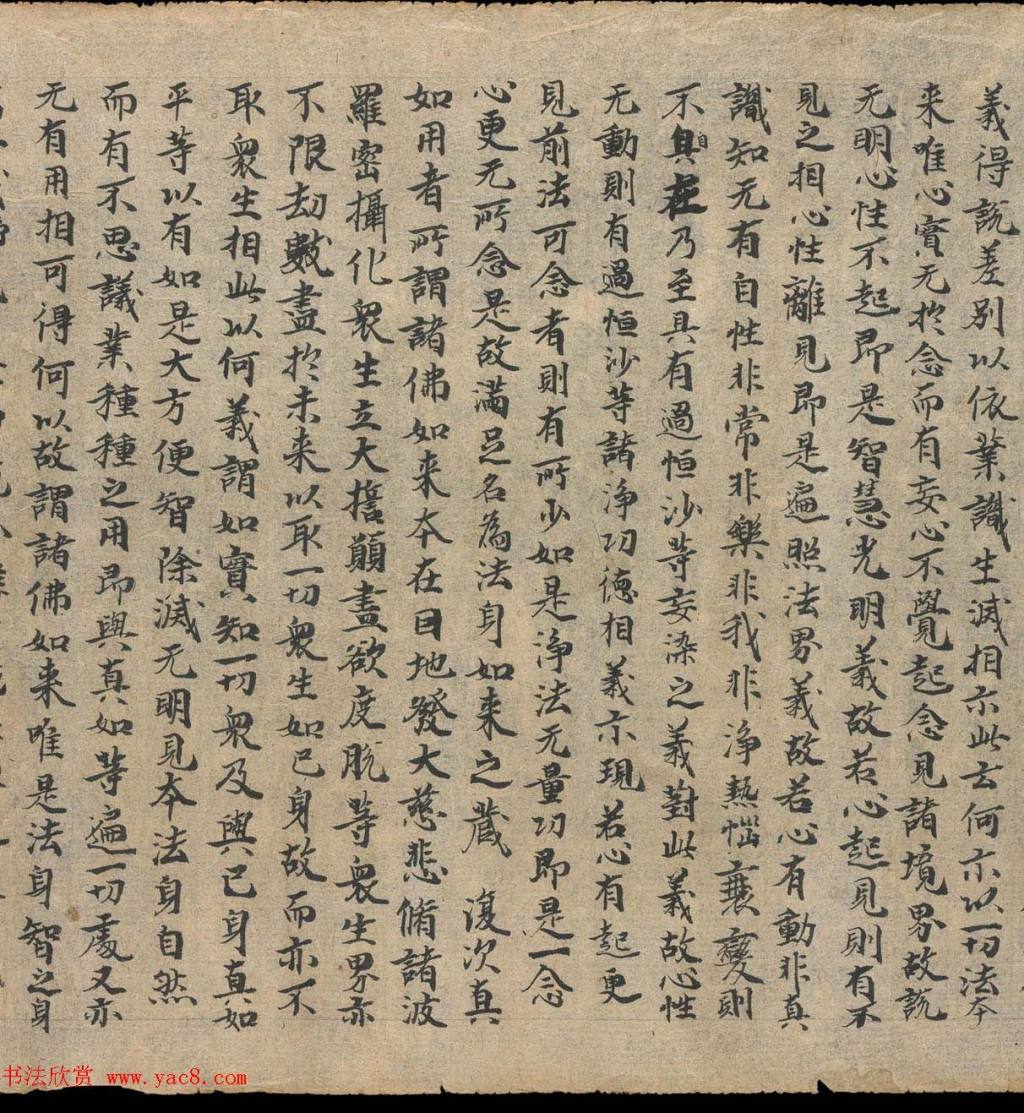 義得說差別以依業識生滅相示此云何示以一切法本
来唯心實无於念而有妄心不覺起念見諸境界故說
无明心性不起即是智慧光明義故若心起見則有不
見之相心性離見即是遍照法界義故若心有動非真
識知无有自性非常非樂非我非淨熱惱衰變則
不自在乃至具有過恒沙等妄染之義對此義故心性
无動則有過恒沙等諸淨功德相義示現若心有起更
見前法可念者則有所少如是淨法无量功即是一念
心更无所念是故滿足名為法身如来之藏 復次真
如用者所謂諸佛如来本在因地發大慈悲脩諸波
羅密攝化衆生立大擔願盡欲度脫等衆生界亦
不限劫數盡於未来以取一切衆生如己身故而亦不
取衆生相此以何義謂如實知一切衆及與己身真如
平等以有如是大方便智除滅无明見本法身自然
而有不思議業種種之用即與真如等遍一切處又亦
无有用相可得何以故謂諸佛如来唯是法身智之身
书法欣赏 www.yac8.com